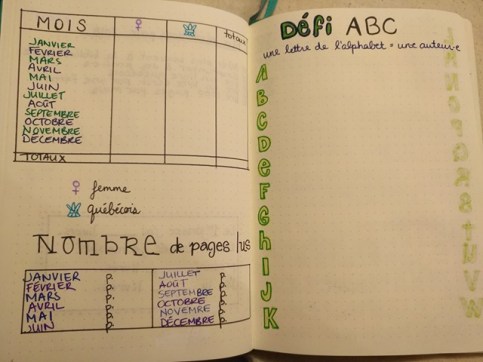 MOIS
totaux
JANVIER
FÉVRIER
MARS
AVRIL
MAI
JUIN
JUILLET
AOÛT
SEPTEMBRE
OCTOBRE
NOVEMBRE
DÉCEMBRE
TOTAUX
femme
québécois
NOMBRE de pages lus
JANVIER p.
FÉVRIER p.
MARS p.
AVRIL p.
MAI p.
JUIN p.
JUILLET p.
AOÛT p.
SEPTEMBRE p.
OCTOBRE p.
NOVEMRE p.
DÉCEMBRE p.
Défi ABC
une lettre de l'alphabet = une auteur·e
A
B
C
D
E
F
G
H
I
J
K